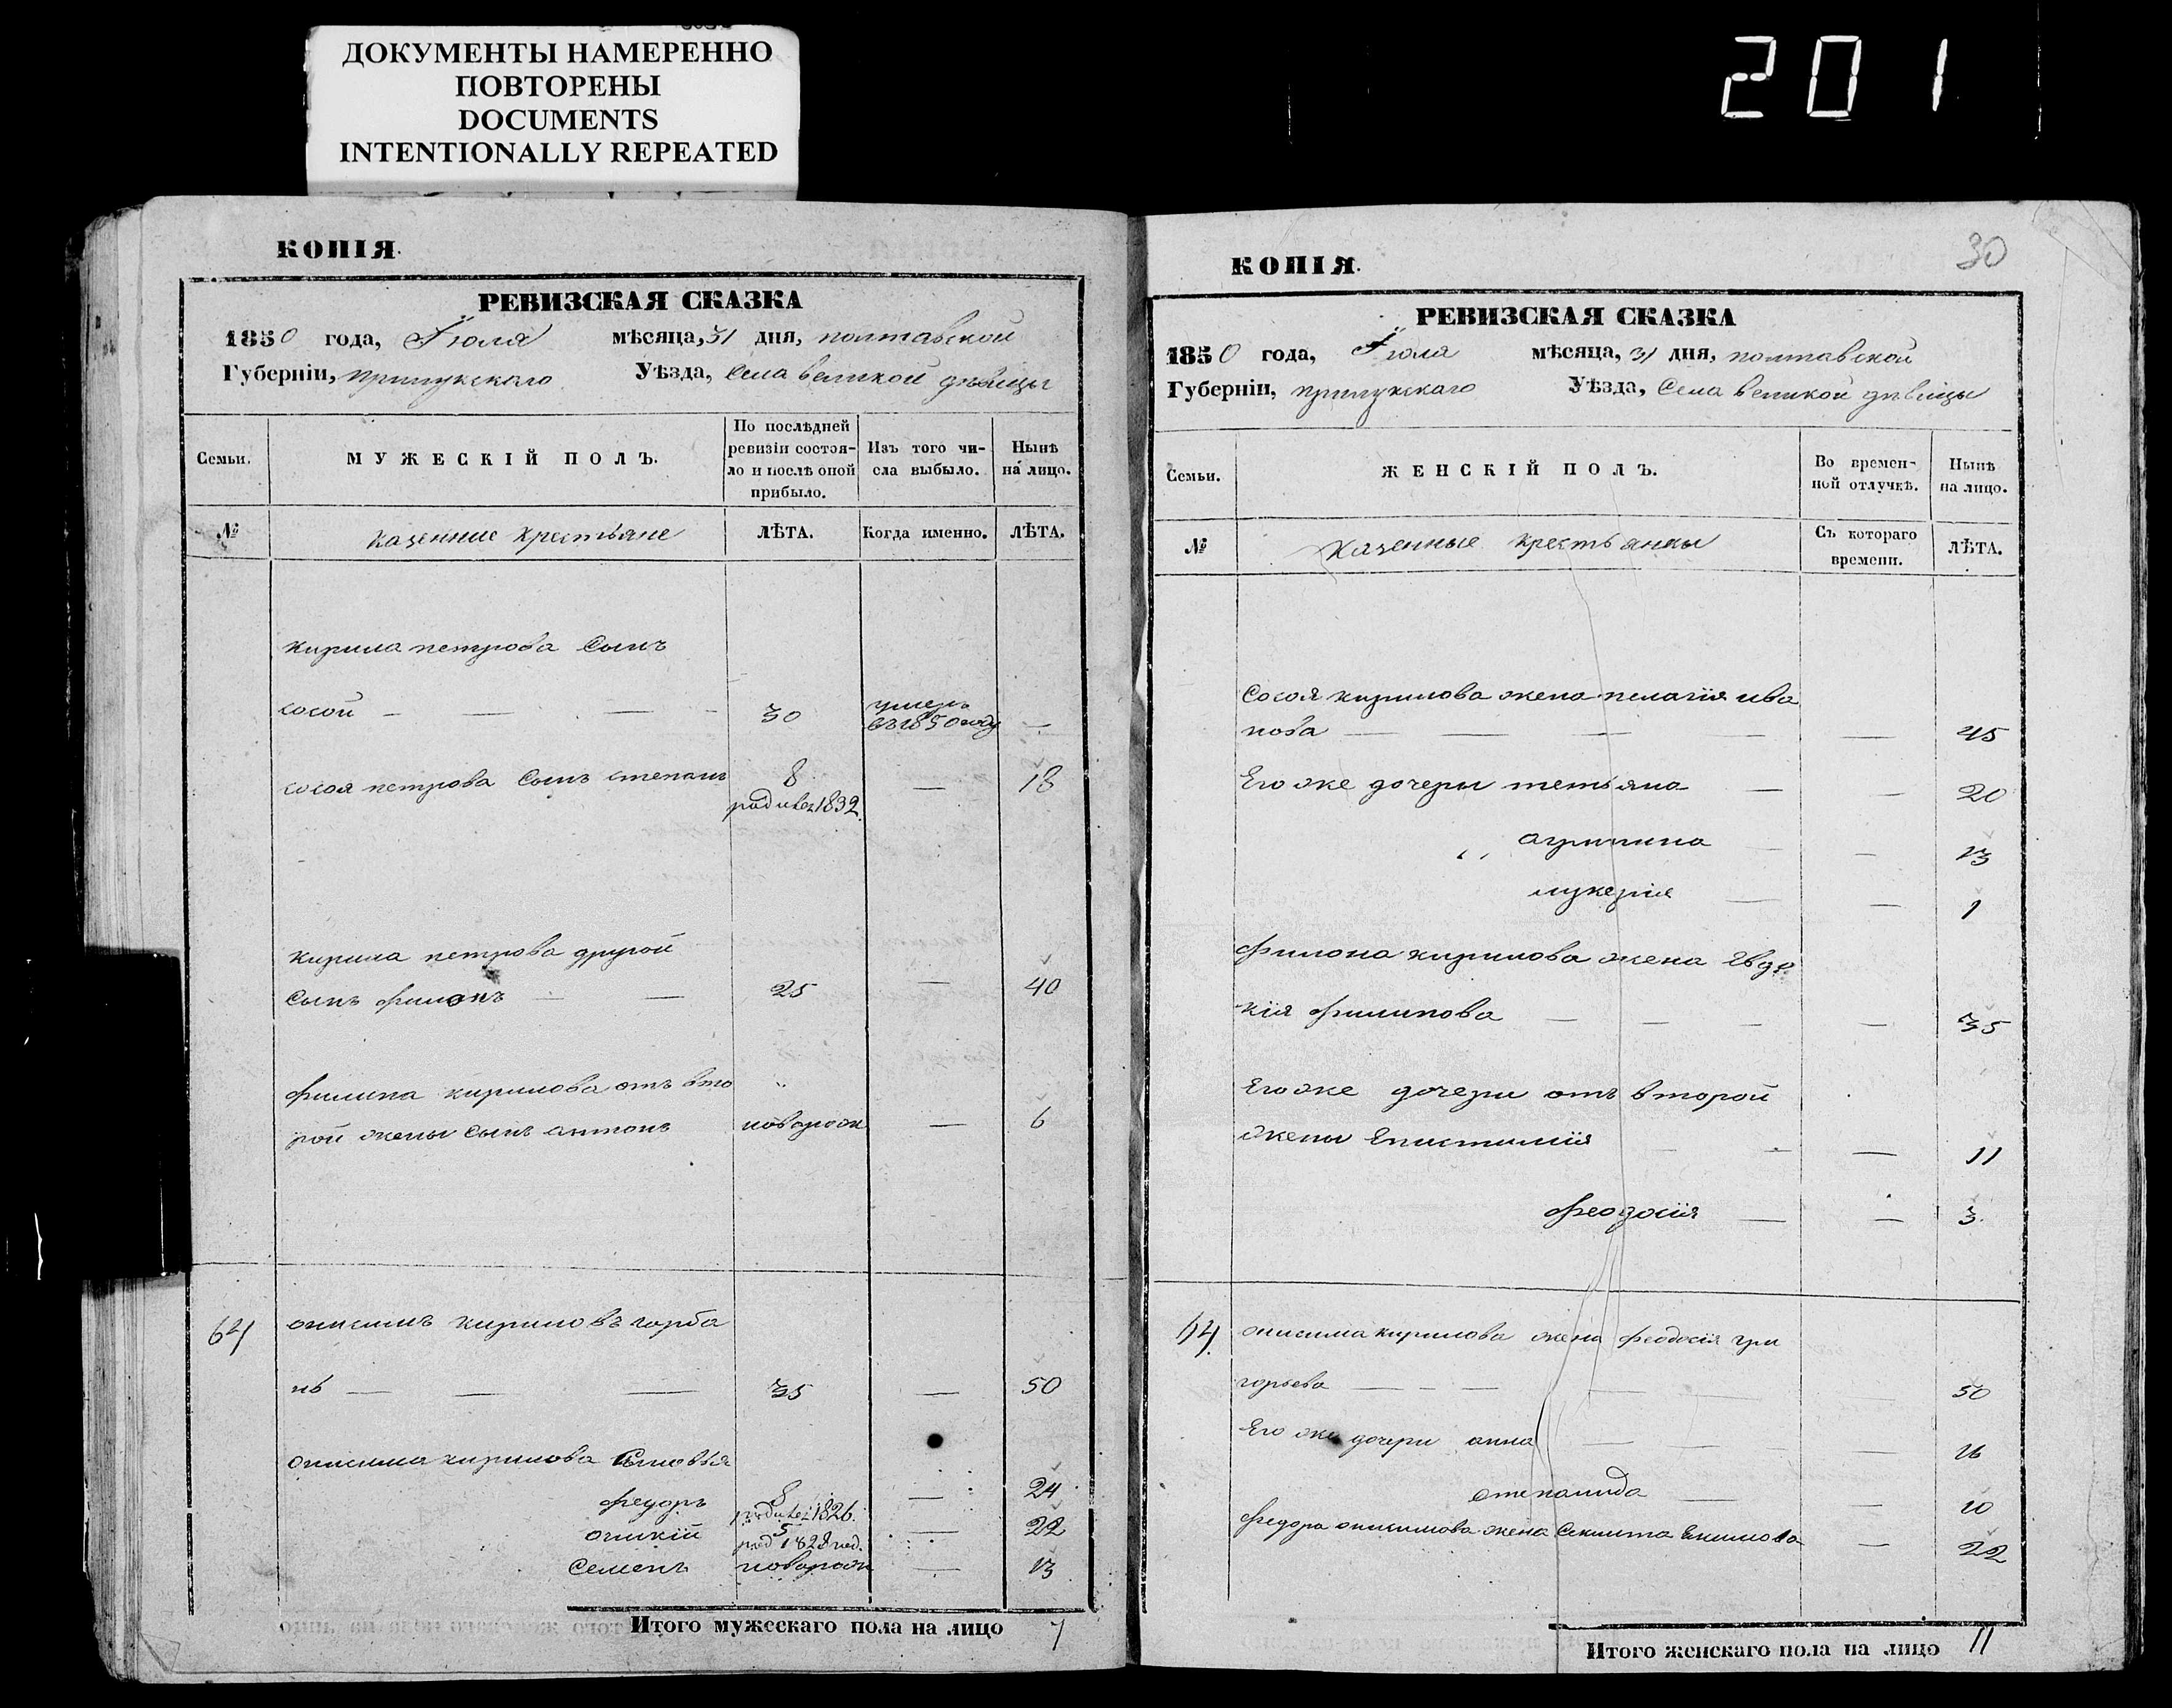 ДОКУМЕНТЫ НАМЕРЕННО
ПОВТОРЕНЫ
DOCUMENTS
INTENTIONALLY REPEATED
201
КОПІЯ.
РЕВИЗСКАЯ СКАЗКА
1850 года, Іюля мѣсяца, 31 дня, полтавской
Губерніи, прилукского Уѣзда, Села великой дѣвицы
Семьи.
МУЖЕСКІЙ ПОЛЪ.
По послѣдней ревизіи состоя-
ло и послѣ оной прибыло.
Изъ того чи-
сла выбыло.
Нынѣ
на лицо.
№ казенние крестьяне ЛѢТА. Когда именно. ЛѢТА.
кирила петрова Сынъ
сосой — — — 30 умеръ въ 1850 году —
сосоя петрова Сынъ степанъ 8 — 18
родилсz 1832.
кирила петрова другой
Сынъ филонъ — — 25 — 40
филипа кирилова отъ вто
рой жены Сынъ антонъ новорож — 6
64 онисимъ кириловъ горба
нь — — — 35 — 50
онисима кирилова Сыновья
федоръ 8 — 24
родилсz 1826.
оникій 5 — 22
род 1828 год.
Семенъ новорож — 13
Итого мужескаго пола на лицо 7
30
КОПІЯ.
РЕВИЗСКАЯ СКАЗКА
1850 года, Іюля мѣсяца, 31 дня, полтавской
Губерніи, прилукскаго Уѣзда, Села великой дѣвіцы
Семьи.
ЖЕНСКІЙ ПОЛЪ.
Во времен-
ной отлучкѣ.
Нынѣ
на лицо.
№ Казенные крестьянки Съ котораго времени. ЛѢТА.
Сосоя кирилова жена пелагія ива
нова — — — — — 45
Его же дочери тетьяна — — 20
агрипина — — 13
лукерія — — 1
филона кирилова жена Евдо
кія филипова — — — — 35
Его же дочери отъ второй
жены Епистимія — — — 11
феодосія — — 3
64. онисима кирилова жена феодосія гри
горьева — — — — 50
Его же дочери анна — — — 16
степанида — — 10
федора онисимова жена Секлита Екимова — 22
Итого женскаго пола на лицо 11